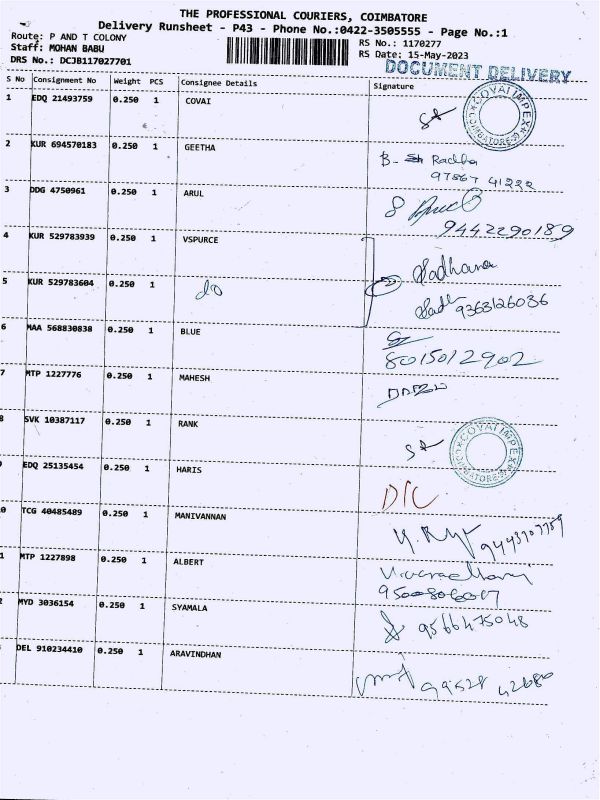 THE PROFESSIONAL COURIERS, COIMBATORE
Delivery Runsheet - P43 - Phone No.:0422-3505555 - Page No.:1
Route: P AND T COLONY
RS No.: 1170277
Staff: MOHAN BABU
RS Date: 15-May-2023
DRS No.: DCJB117027701
DOCUMENT DELIVERY
S No Consignment No Weight PCS Consignee Details Signature
1 EDQ 21493759 0.250 1 COVAI
COVAI IMPEX COIMBATORE
2 KUR 694570183 0.250 1 GEETHA
B- Radha
97867 41222
3 DDG 4750961 0.250 1 ARUL
9442290189
4 KUR 529783939 0.250 1 VSPURCE
Sadhana
5 KUR 529783604 0.250 1 do
9363126036
6 MAA 568830838 0.250 1 BLUE
8015012902
7 MTP 1227776 0.250 1 MAHESH
8 SVK 10387117 0.250 1 RANK
COVAI IMPEX COIMBATORE
EDQ 25135454 0.250 1 HARIS
D/C
0 TCG 40485489 0.250 1 MANIVANNAN
1 MTP 1227898 0.250 1 ALBERT
2 MYD 3036154 0.250 1 SYAMALA
9566475048
DEL 910234410 0.250 1 ARAVINDHAN
99528 42680